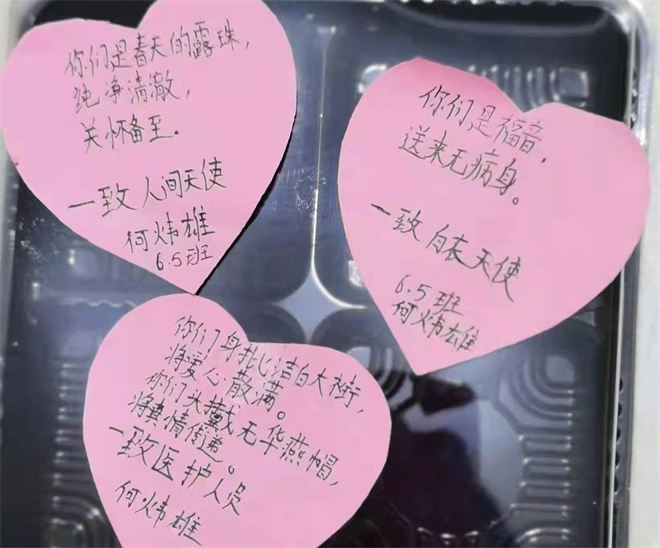 你们是春天的露珠,
纯净清澈,
关怀备至.
一致人间天使
何炜雄
6.5班
你们是福音,
送来无病身。
一致白衣天使
6.5班
何炜雄
你们身批洁白大衔,
将爱心散满。
你们头戴无华燕帽,
将真情传递。
一致医护人员
何炜雄